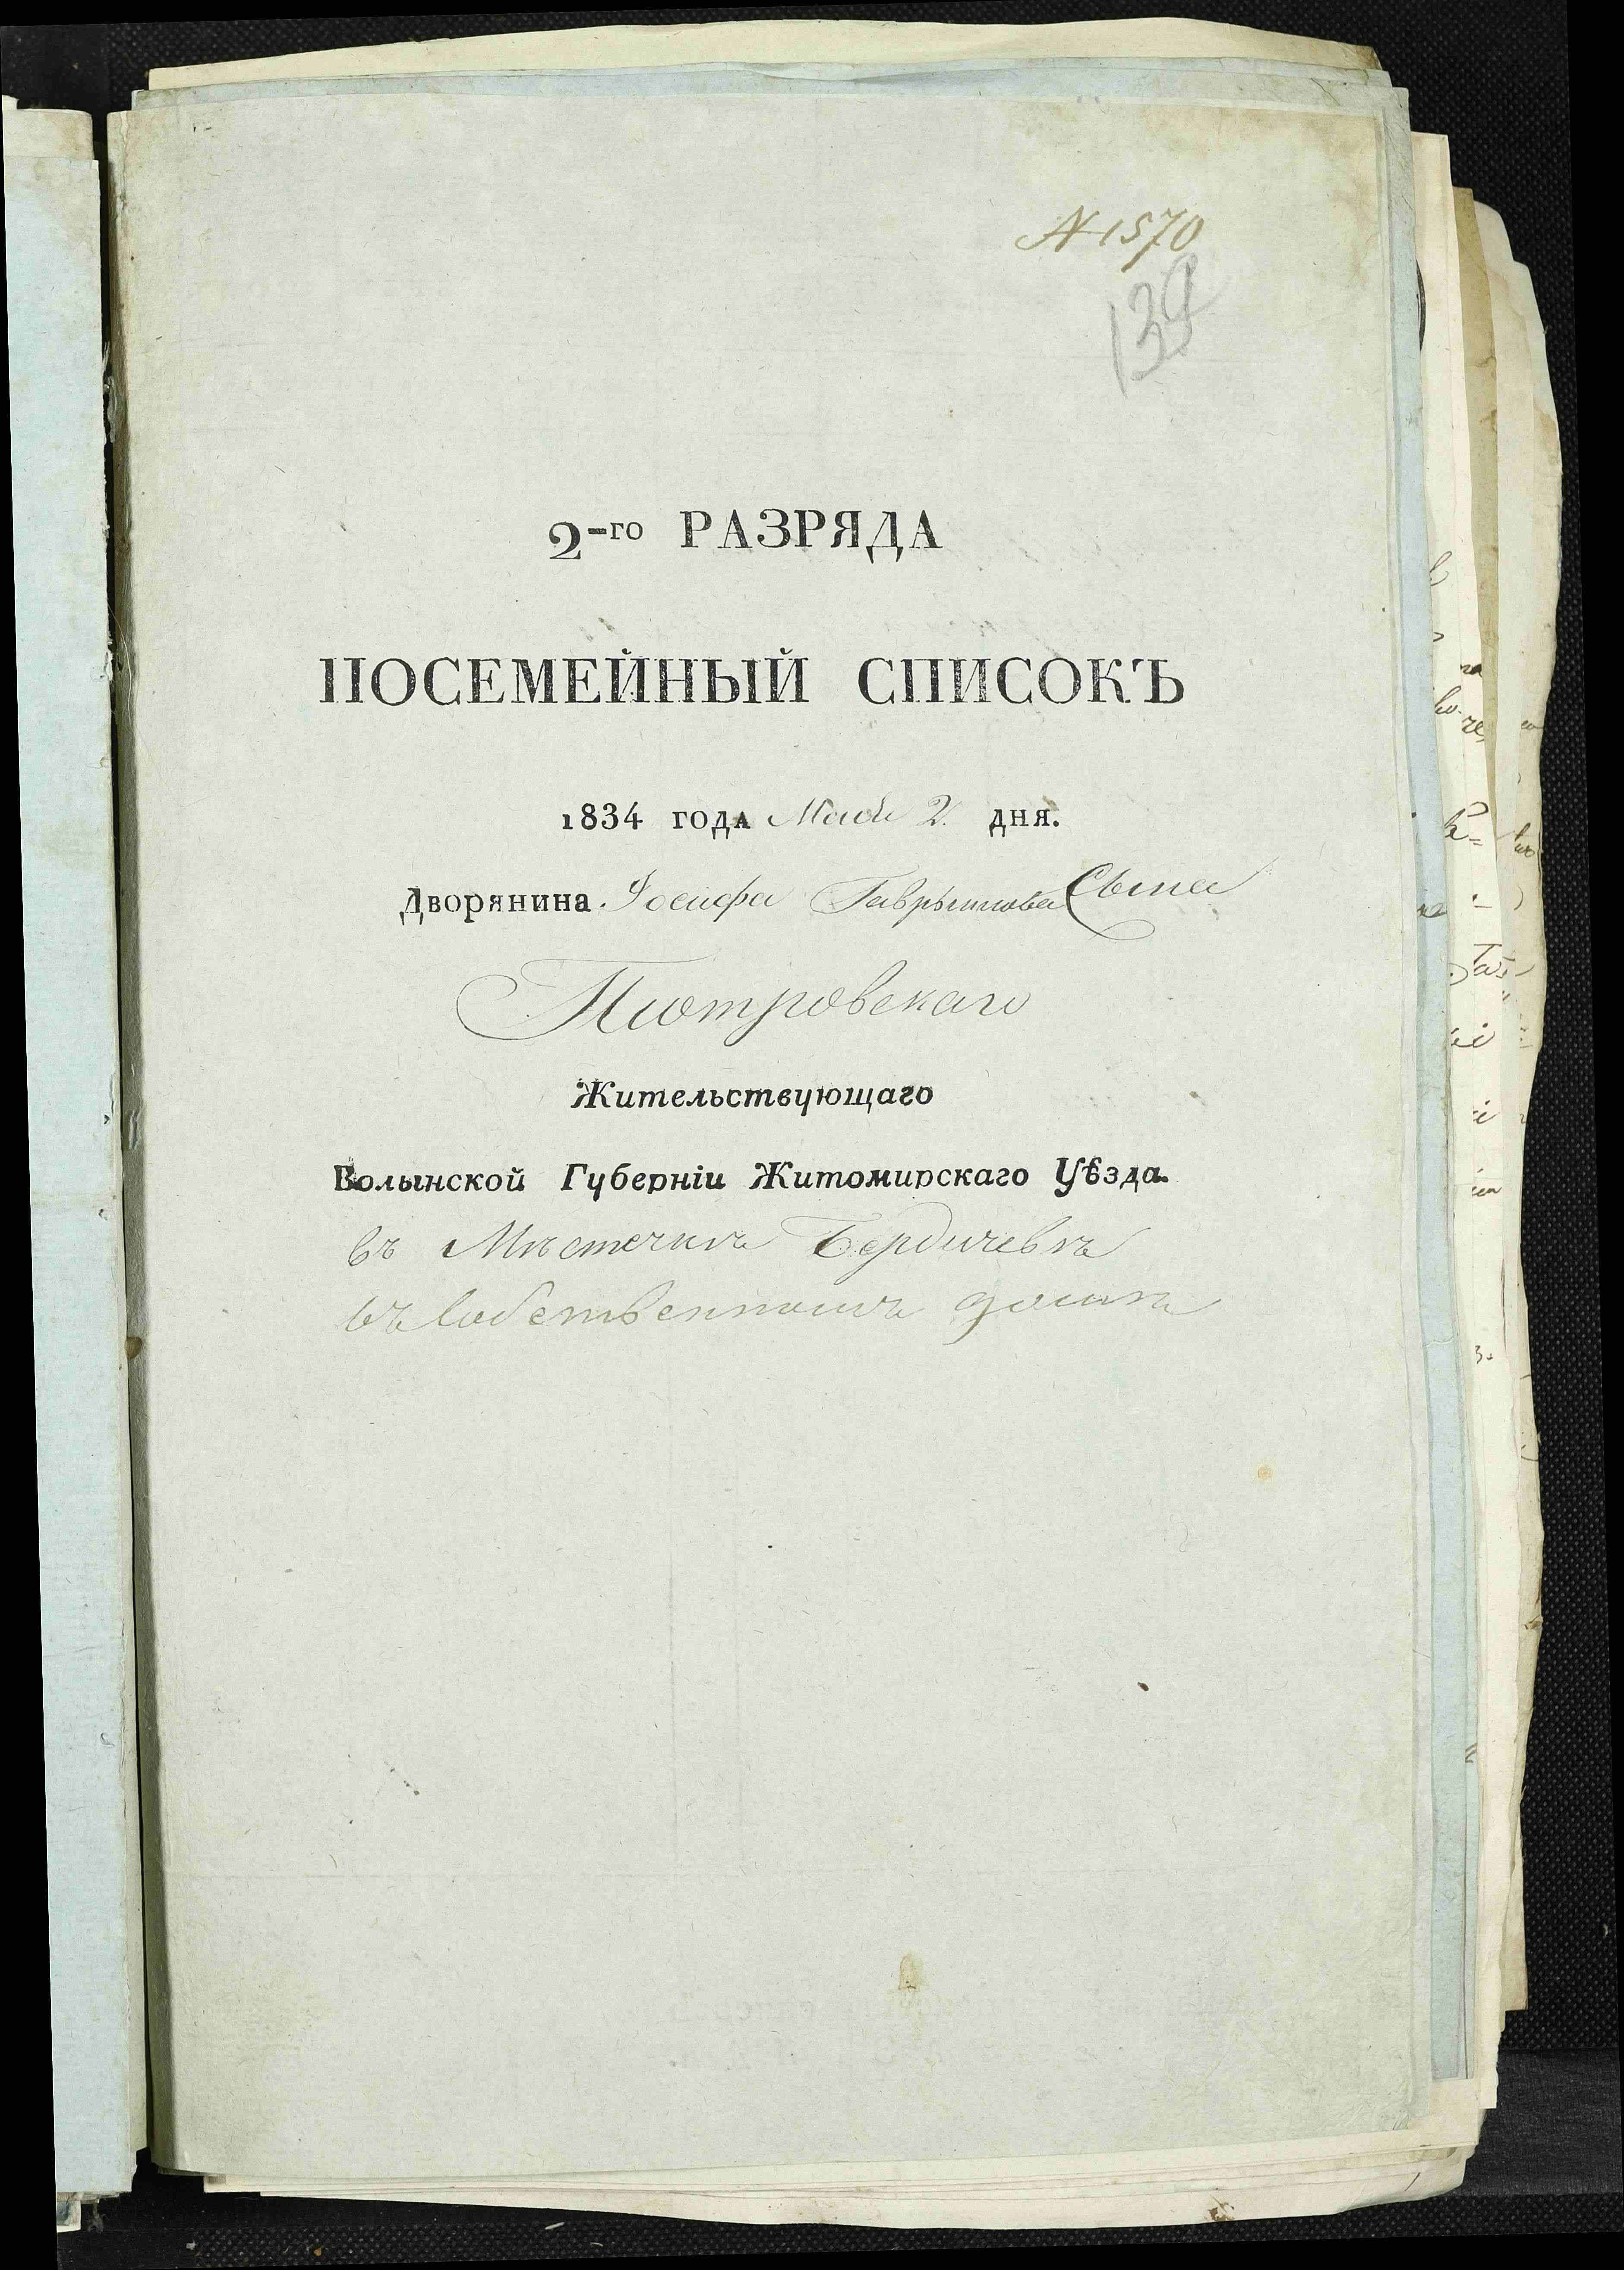 N 1570
139
2-го РАЗРЯДА
ПОСЕМЕЙНЫЙ СПИСОКЪ
1834 года Мая 2 дня.
Дворянина Іосифа Сына
Піотровскаго
Жительствующаго
Волынской Губерніи Житомирскаго Уѣзда.
въ Мѣстечкѣ Бердичевѣ
въ собственномъ домѣ